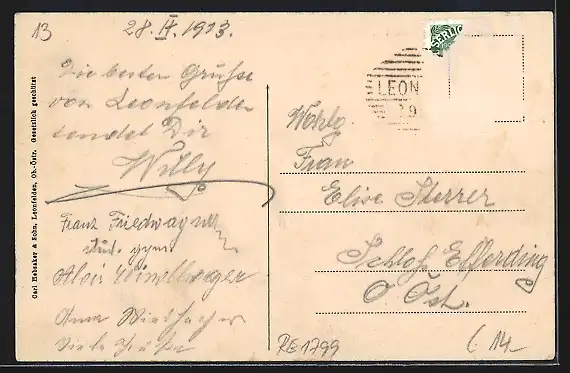 13
28. IX. 1913.
Die besten Grüße
von Leonfelden
sendet Dir
Willy
Franz Friedwagner
stud. gym.
Alois Windberger
Anna
Viele Grüße
LEON
Wohlg.
Frau
Elise Sterrer
Schloß Efferding
O Öst.
RE1799
14
Carl Hebsaker & Sohn, Leonfelden, Ob.-Östr. Gesetzlich geschützt